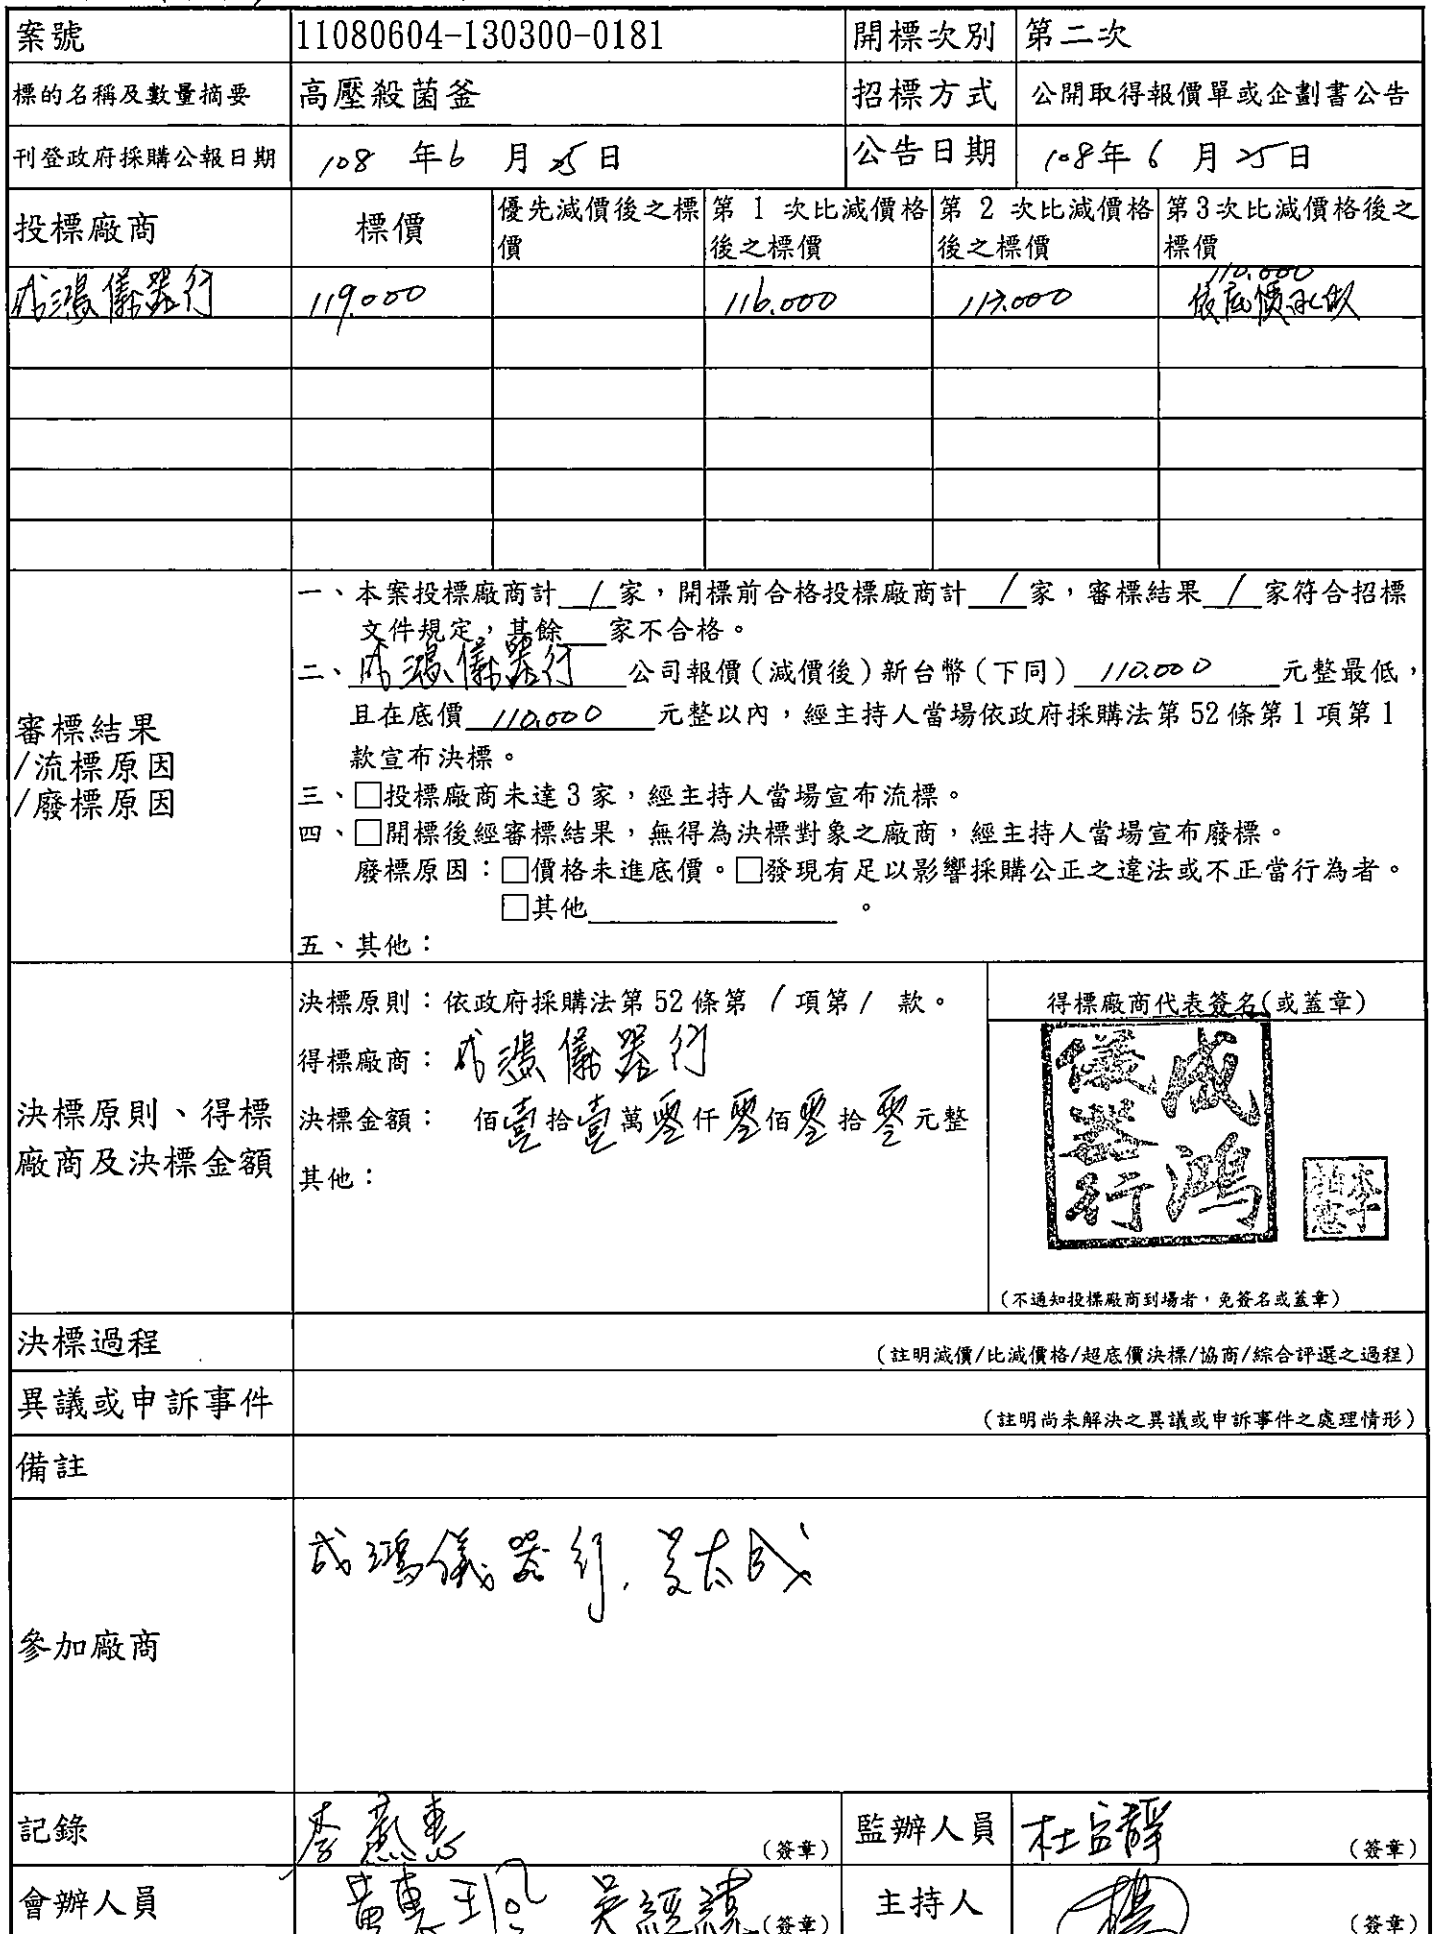 案號 11080604-130300-0181 開標次別 第二次
標的名稱及數量摘要 高壓殺菌釜 招標方式 公開取得報價單或企劃書公告
刊登政府採購公報日期 108 年 6 月 25 日 公告日期 108 年 6 月 25 日
投標廠商 標價 優先減價後之標價 第 1 次比減價格後之標價 第 2 次比減價格後之標價 第3次比減價格後之標價
110.000
成鴻儀器行 119.000 116.000 113.000 依底價承做
審標結果
/流標原因
/廢標原因
一、本案投標廠商計 / 家，開標前合格投標廠商計 / 家，審標結果 / 家符合招標
文件規定，其餘 家不合格。
二、成鴻儀器行 公司報價（減價後）新台幣（下同） 110.000 元整最低，
且在底價 110.000 元整以內，經主持人當場依政府採購法第 52 條第 1 項第 1
款宣布決標。
三、□投標廠商未達 3 家，經主持人當場宣布流標。
四、□開標後經審標結果，無得為決標對象之廠商，經主持人當場宣布廢標。
廢標原因：□價格未進底價。□發現有足以影響採購公正之違法或不正當行為者。
□其他 。
五、其他：
決標原則、得標
廠商及決標金額
決標原則：依政府採購法第 52 條第 / 項第 / 款。
得標廠商：成鴻儀器行
決標金額： 佰壹拾壹萬零仟零佰零拾零元整
其他：
得標廠商代表簽名(或蓋章)
成鴻
儀器行
（不通知投標廠商到場者，免簽名或蓋章）
決標過程 （註明減價/比減價格/超底價決標/協商/綜合評選之過程）
異議或申訴事件 （註明尚未解決之異議或申訴事件之處理情形）
備註
參加廠商 成鴻儀器行.
記錄 李燕惠 （簽章） 監辦人員 （簽章）
會辦人員 （簽章） 主持人 楊 （簽章）